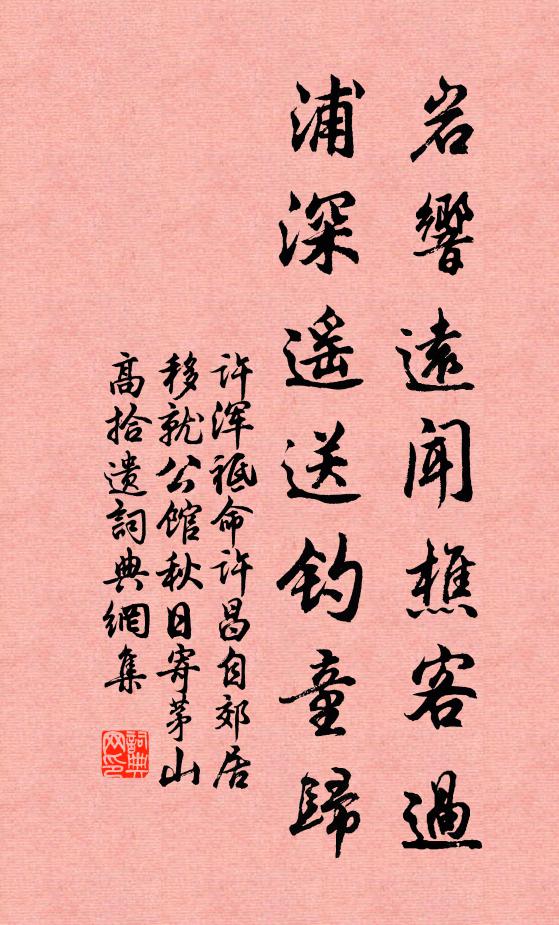 岩響遠聞樵客過
浦深遥送釣童歸
许浑祗命许昌自郊居
移就公館秋日寄茅山
高拾遺詞典網集
詞典
网印